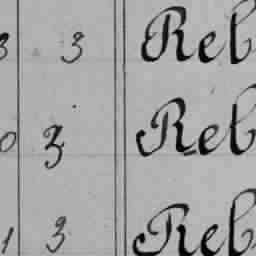 3 3 Reb
0 3 Reb
1 3 Reb